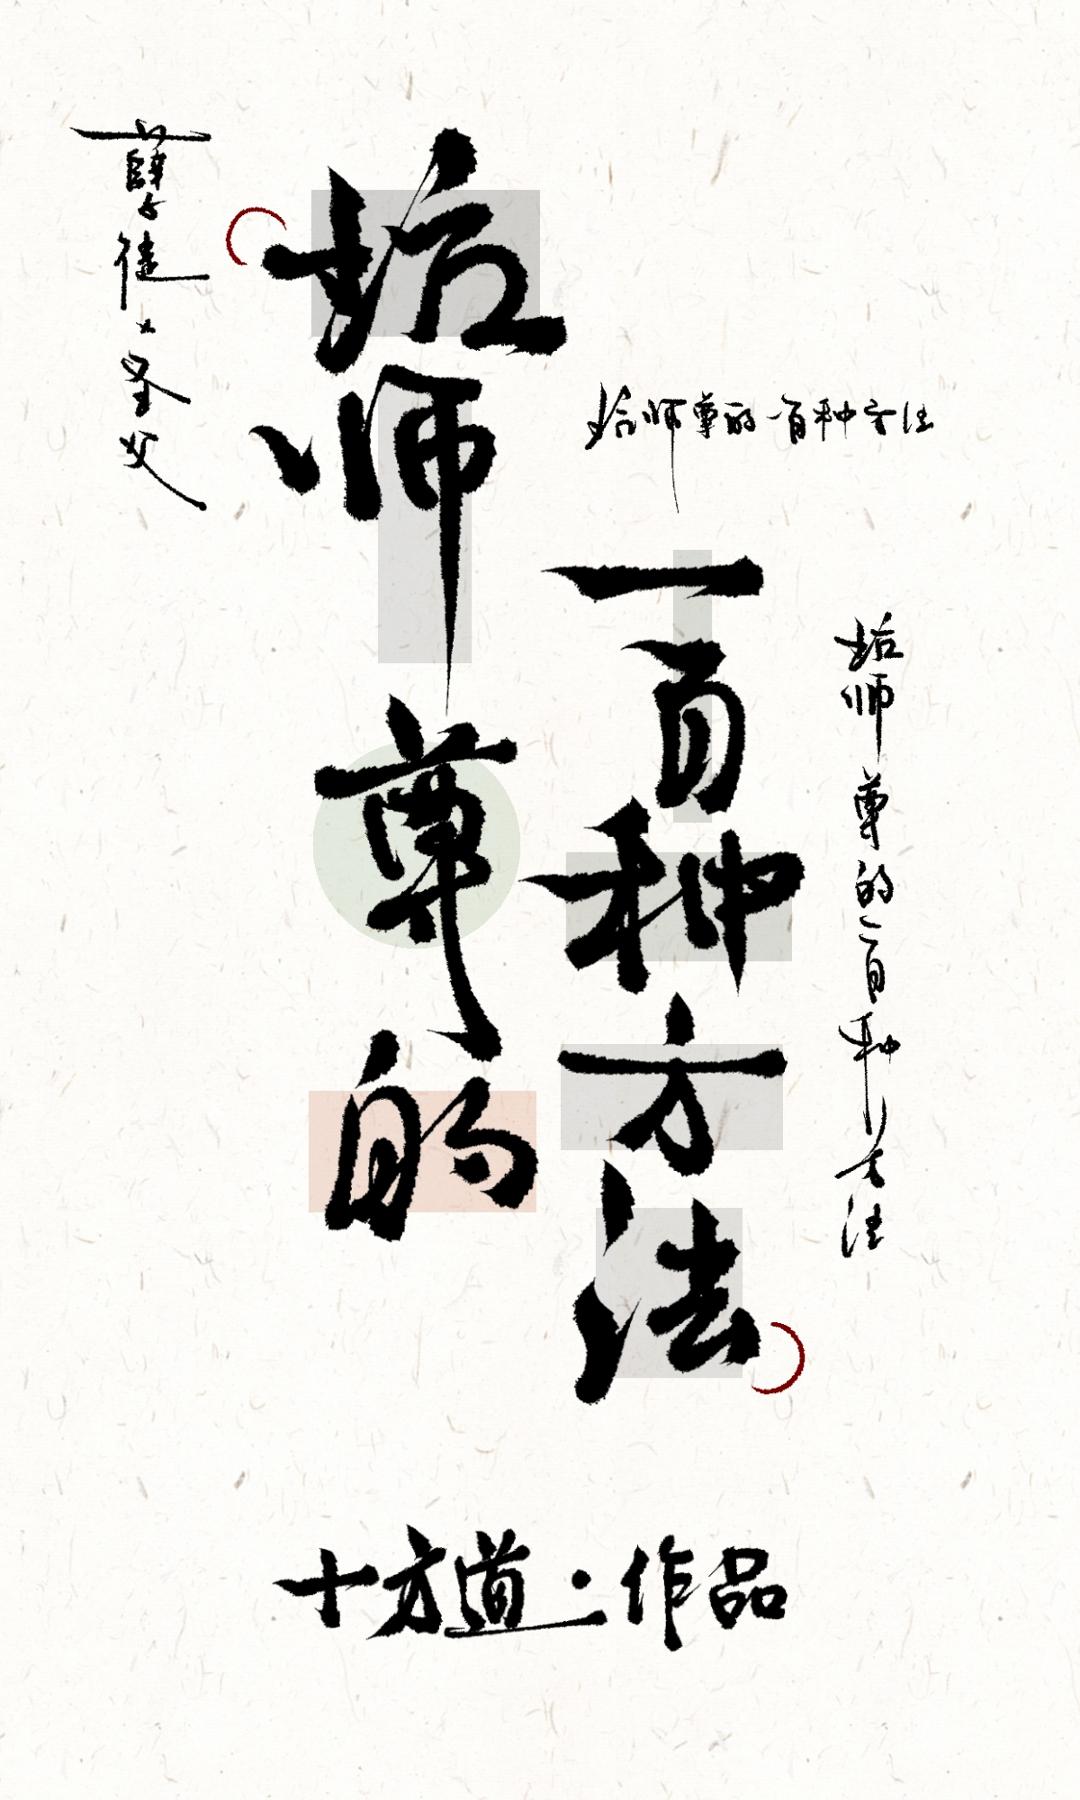 孽徒x圣父
坑师尊的
坑师尊的一百种方法
一百种方法
坑师尊的一百种方法
十方道·作品